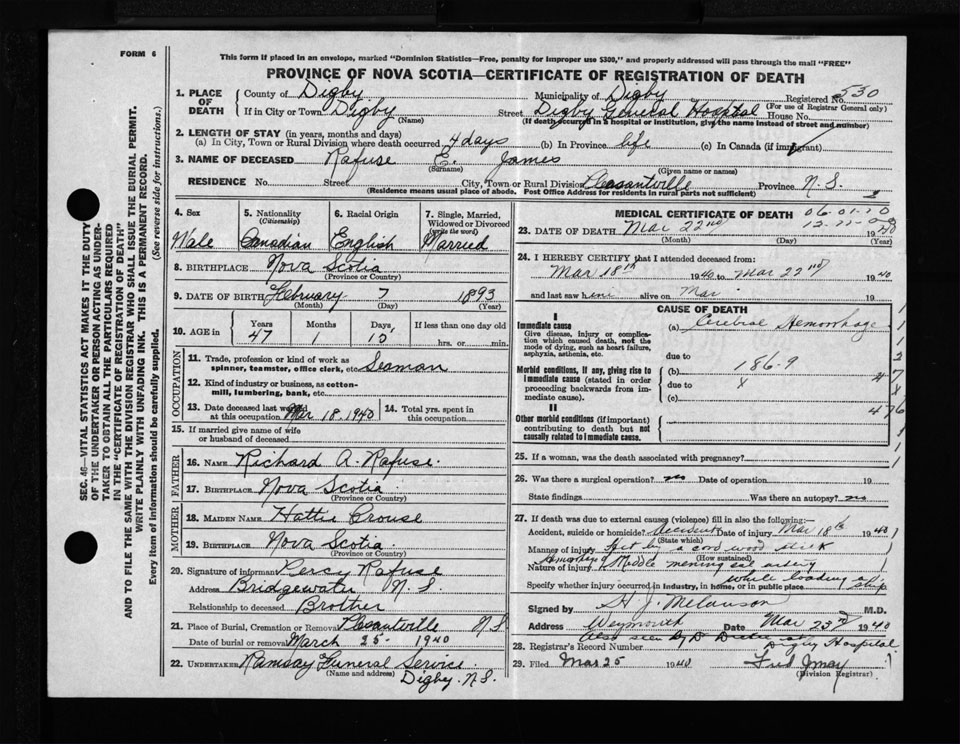 FORM 6
This form if placed in an envelope, marked "Dominion Statistics—Free, penalty for improper use $300," and properly addressed will pass through the mail "FREE"
PROVINCE OF NOVA SCOTIA—CERTIFICATE OF REGISTRATION OF DEATH
1. PLACE OF DEATH County of Digby Municipality of Digby Registered No. 530
(For use of Registrar General only)
If in City or Town Digby Street Digby General Hospital House No.
(Name) (If death occurred in a hospital or institution, give the name instead of street and number)
2. LENGTH OF STAY (in years, months and days)
(a) In City, Town or Rural Division where death occurred 4 days (b) In Province life (c) In Canada (if immigrant)
3. NAME OF DECEASED Rafuse E. James
(Surname) (Given name or names)
RESIDENCE No. Street City, Town or Rural Division Pleasantville Province N.S.
(Residence means usual place of abode. Post Office Address for residents in rural parts not sufficient)
4. Sex 5. Nationality (Citizenship) 6. Racial Origin 7. Single, Married, Widowed or Divorced (write the word)
Male Canadian English Married
8. BIRTHPLACE Nova Scotia
(Province or Country)
9. DATE OF BIRTH February 7 1893
(Month) (Day) (Year)
10. AGE in Years Months Days If less than one day old
47 1 15 hrs. or min.
OCCUPATION
11. Trade, profession or kind of work as spinner, teamster, office clerk, etc. Seaman
12. Kind of industry or business, as cotton-mill, lumbering, bank, etc.
13. Date deceased last worked at this occupation Mar 18. 1940 14. Total yrs. spent in this occupation
15. If married give name of wife or husband of deceased
FATHER
16. Name Richard A. Rafuse.
17. Birthplace Nova Scotia
(Province or Country)
MOTHER
18. Maiden Name Hattie Crouse
19. Birthplace Nova Scotia
(Province or Country)
20. Signature of informant Percy Rafuse
Address Bridgewater N.S.
Relationship to deceased Brother
21. Place of Burial, Cremation or Removal Plesantville N.S
Date of burial or removal March 25 - 1940
22. UNDERTAKER Ramsay Funeral Service.
(Name and address) Digby. N.S.
MEDICAL CERTIFICATE OF DEATH 06.01.10
23. DATE OF DEATH Mar 22nd 1940
(Month) (Day) (Year)
24. I HEREBY CERTIFY that I attended deceased from:
Mar 18th 1940 to Mar 22nd 1940
and last saw him alive on Mar 19
CAUSE OF DEATH
I
Immediate cause (a) Cerebral Hemorrhage
Give disease, injury or complication which caused death, not the mode of dying, such as heart failure, asphyxia, asthenia, etc.
due to
Morbid conditions, if any, giving rise to immediate cause (stated in order proceeding backwards from immediate cause).
(b) 186.9
due to x
(c)
II
Other morbid conditions (if important) contributing to death but not causally related to immediate cause.
25. If a woman, was the death associated with pregnancy?
26. Was there a surgical operation? no Date of operation 19
State findings Was there an autopsy? no
27. If death was due to external causes (violence) fill in also the following:
Accident, suicide or homicide? Accident Date of injury Mar 18th 1940
(State which)
Manner of injury Hit by a cord wood stick
(How sustained)
Nature of injury Hemorrhage of Middle meningeal artery
while loading a ship
Specify whether injury occurred in industry, in home, or in public place
Signed by H. J. Melanson M.D.
Address Weymouth Date Mar 23rd 1940
Also seen by Dr Digby Hospital
28. Registrar's Record Number
29. Filed Mar 25 1940 Fred Jmay
(Division Registrar)
SEC. 46—VITAL STATISTICS ACT MAKES IT THE DUTY
OF THE UNDERTAKER OR PERSON ACTING AS UNDER-
TAKER TO OBTAIN ALL THE PARTICULARS REQUIRED
IN THE "CERTIFICATE OF REGISTRATION OF DEATH"
AND TO FILE THE SAME WITH THE DIVISION REGISTRAR WHO SHALL ISSUE THE BURIAL PERMIT.
WRITE PLAINLY WITH UNFADING INK. THIS IS A PERMANENT RECORD.
Every item of information should be carefully supplied. (See reverse side for instructions.)